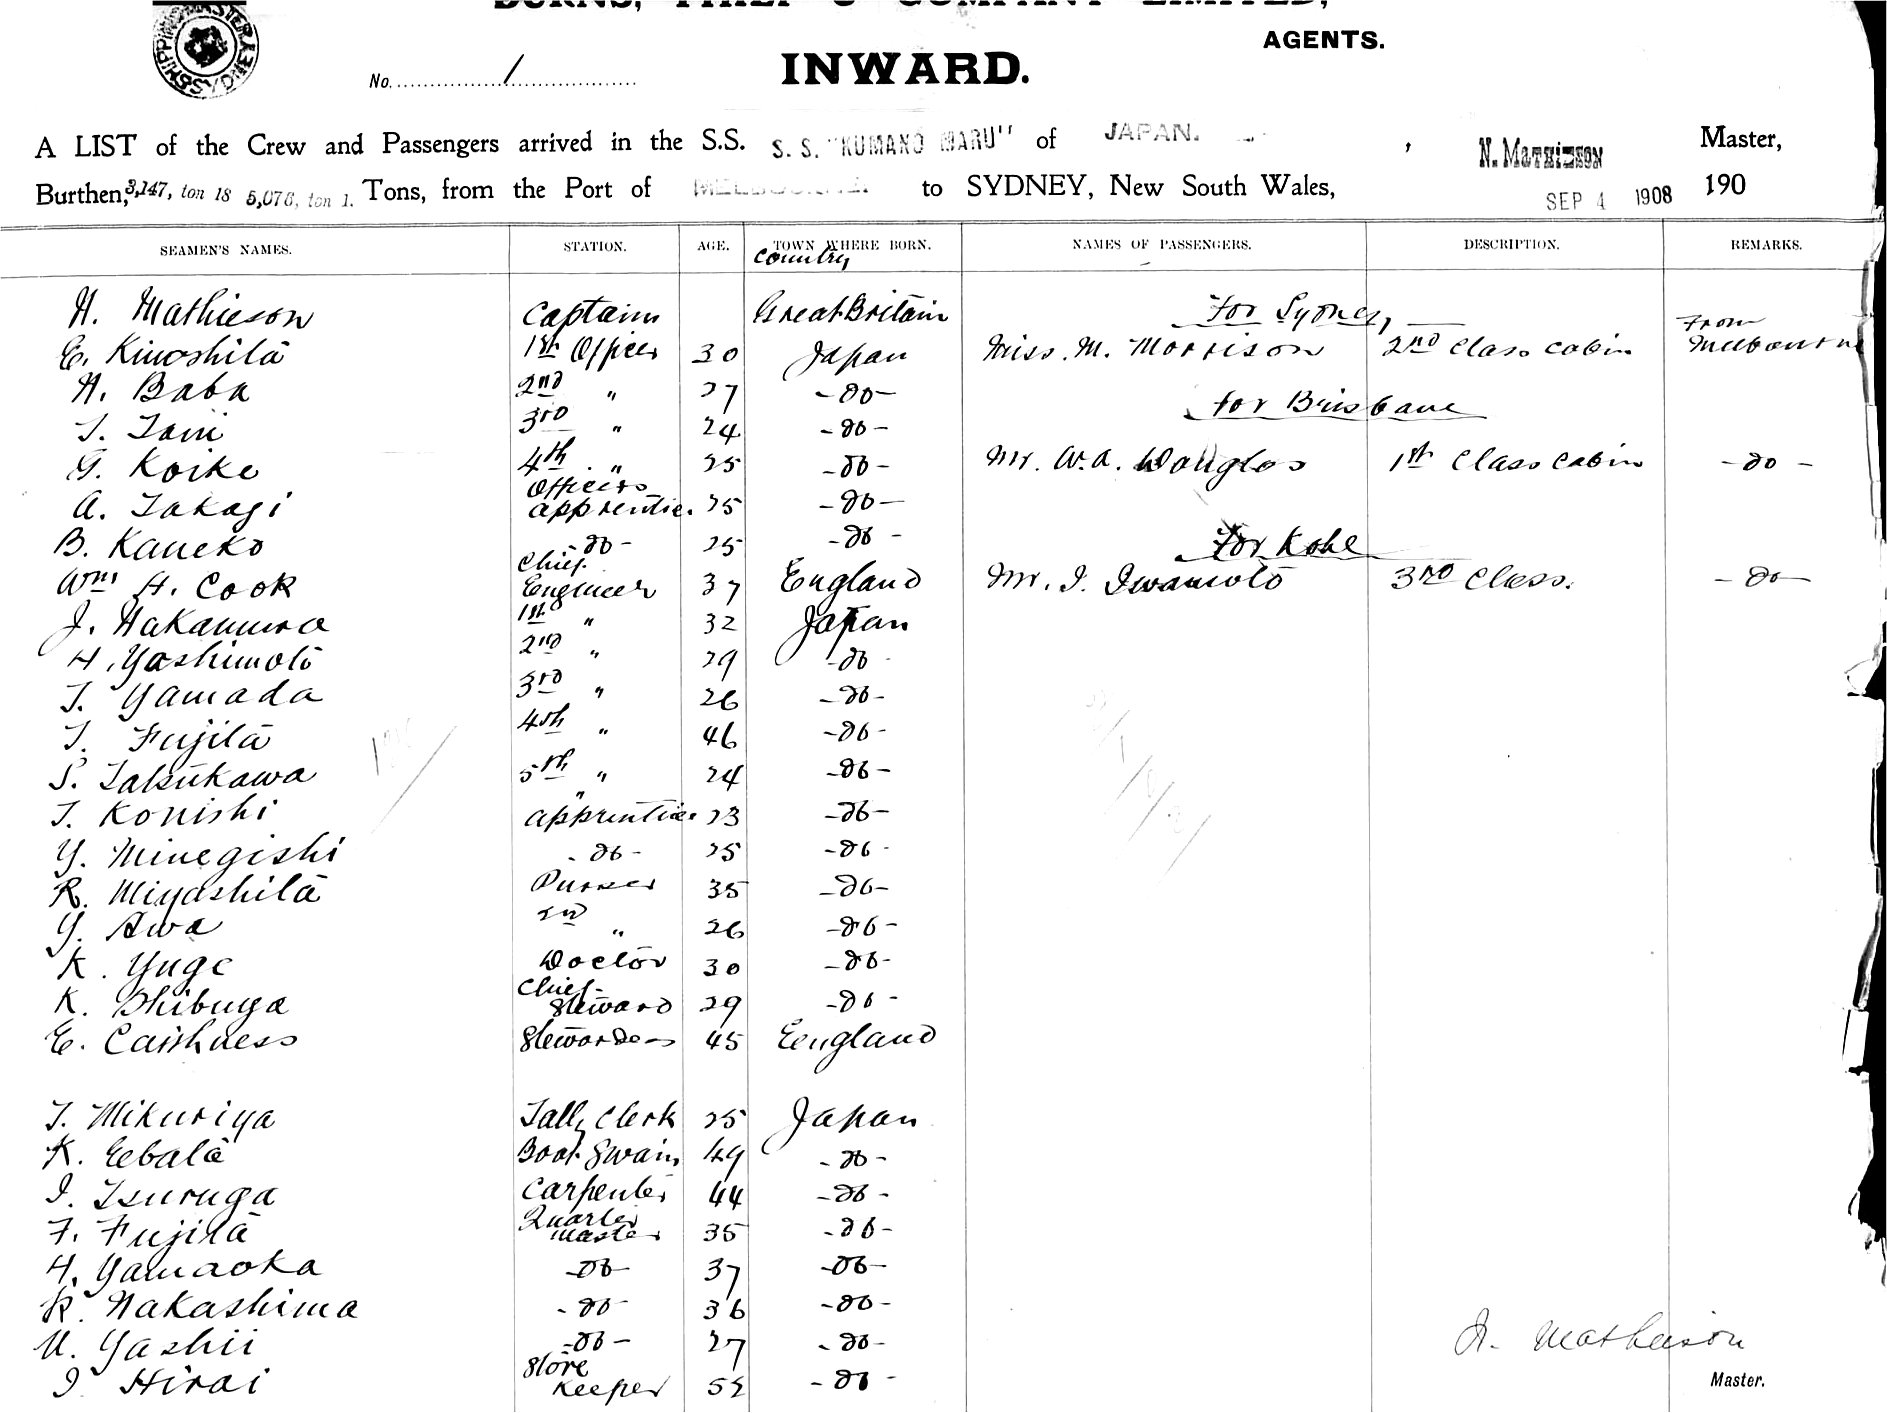 BURNS, PHILP & COMPANY LIMITED,
AGENTS.
SHIPPING MASTER SYDNEY
No. 1
INWARD.
A LIST of the Crew and Passengers arrived in the S.S. S. S. "KUMANO MARU" of JAPAN. , N. MATHIESON Master,
Burthen, 3,147, ton 18 5,076, ton 1. Tons, from the Port of MELBOURNE. to SYDNEY, New South Wales, SEP 4 1908 190
SEAMEN'S NAMES. STATION. AGE. TOWN WHERE BORN. NAMES OF PASSENGERS. DESCRIPTION. REMARKS.
Country
N. Mathieson Captain Great Britain For Sydney
E. Kinoshita 1st Officer 30 Japan Miss. M. Morrison 2nd Class Cabin From Melbourne
N. Baba 2nd " 27 -do- For Brisbane
T. Tani 3rd " 24 -do-
G. Koike 4th " 25 -do- Mr. W. A. Douglas 1st Class Cabin -do-
A. Takagi Officers apprentice 25 -do-
B. Kaneko -do- 25 -do- For Kobe
Wm H. Cook Chief Engineer 37 England Mr. I. Iwamoto 3rd Class. -do-
J. Nakamura 1st " 32 Japan
H. Yoshimoto 2nd " 29 -do-
T. Yamada 3rd " 26 -do-
T. Fujita 4th " 46 -do-
S. Tatsukawa 5th " 24 -do-
T. Konishi " apprentice 23 -do-
Y. Minegishi -do- 25 -do-
R. Miyashita Purser 35 -do-
Y. Awa 2nd " 26 -do-
K. Yuge Doctor 30 -do-
K. Shibuya Chief Steward 29 -do-
E. Caithness Stewardess 45 England
T. Mikuriya Tally Clerk 25 Japan
K. Eebata Boat Swain 49 -do-
I. Tsuruga Carpenter 44 -do-
F. Fujita Quarter master 35 -do-
H. Yamaoka -do- 37 -do-
K. Nakashima -do- 36 -do-
U. Yashii -do- 27 -do-
I. Hirai Store Keeper 52 -do-
N. Mathieson
Master.